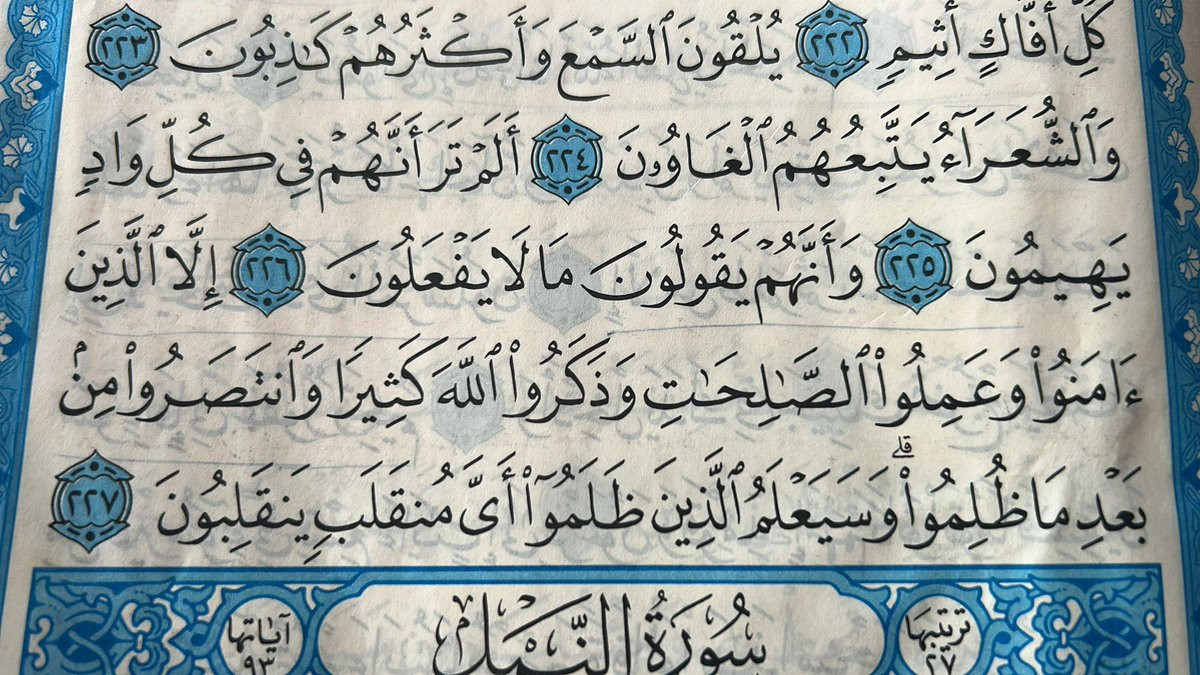 كُلِّ أَفَّاكٍ أَثِيمٍ ٢٢٢ يُلْقُونَ ٱلسَّمْعَ وَأَكْثَرُهُمْ كَٰذِبُونَ ٢٢٣
وَٱلشُّعَرَآءُ يَتَّبِعُهُمُ ٱلْغَاوُۥنَ ٢٢٤ أَلَمْ تَرَ أَنَّهُمْ فِي كُلِّ وَادٍ
يَهِيمُونَ ٢٢٥ وَأَنَّهُمْ يَقُولُونَ مَا لَا يَفْعَلُونَ ٢٢٦ إِلَّا ٱلَّذِينَ
ءَامَنُوا۟ وَعَمِلُوا۟ ٱلصَّٰلِحَٰتِ وَذَكَرُوا۟ ٱللَّهَ كَثِيرًا وَٱنتَصَرُوا۟ مِنۢ
بَعْدِ مَا ظُلِمُوا۟ ۗ وَسَيَعْلَمُ ٱلَّذِينَ ظَلَمُوٓا۟ أَىَّ مُنقَلَبٍ يَنقَلِبُونَ ٢٢٧
ترتيبها ٢٧ سُورَةُ النَّمْلِ آياتها ٩٣